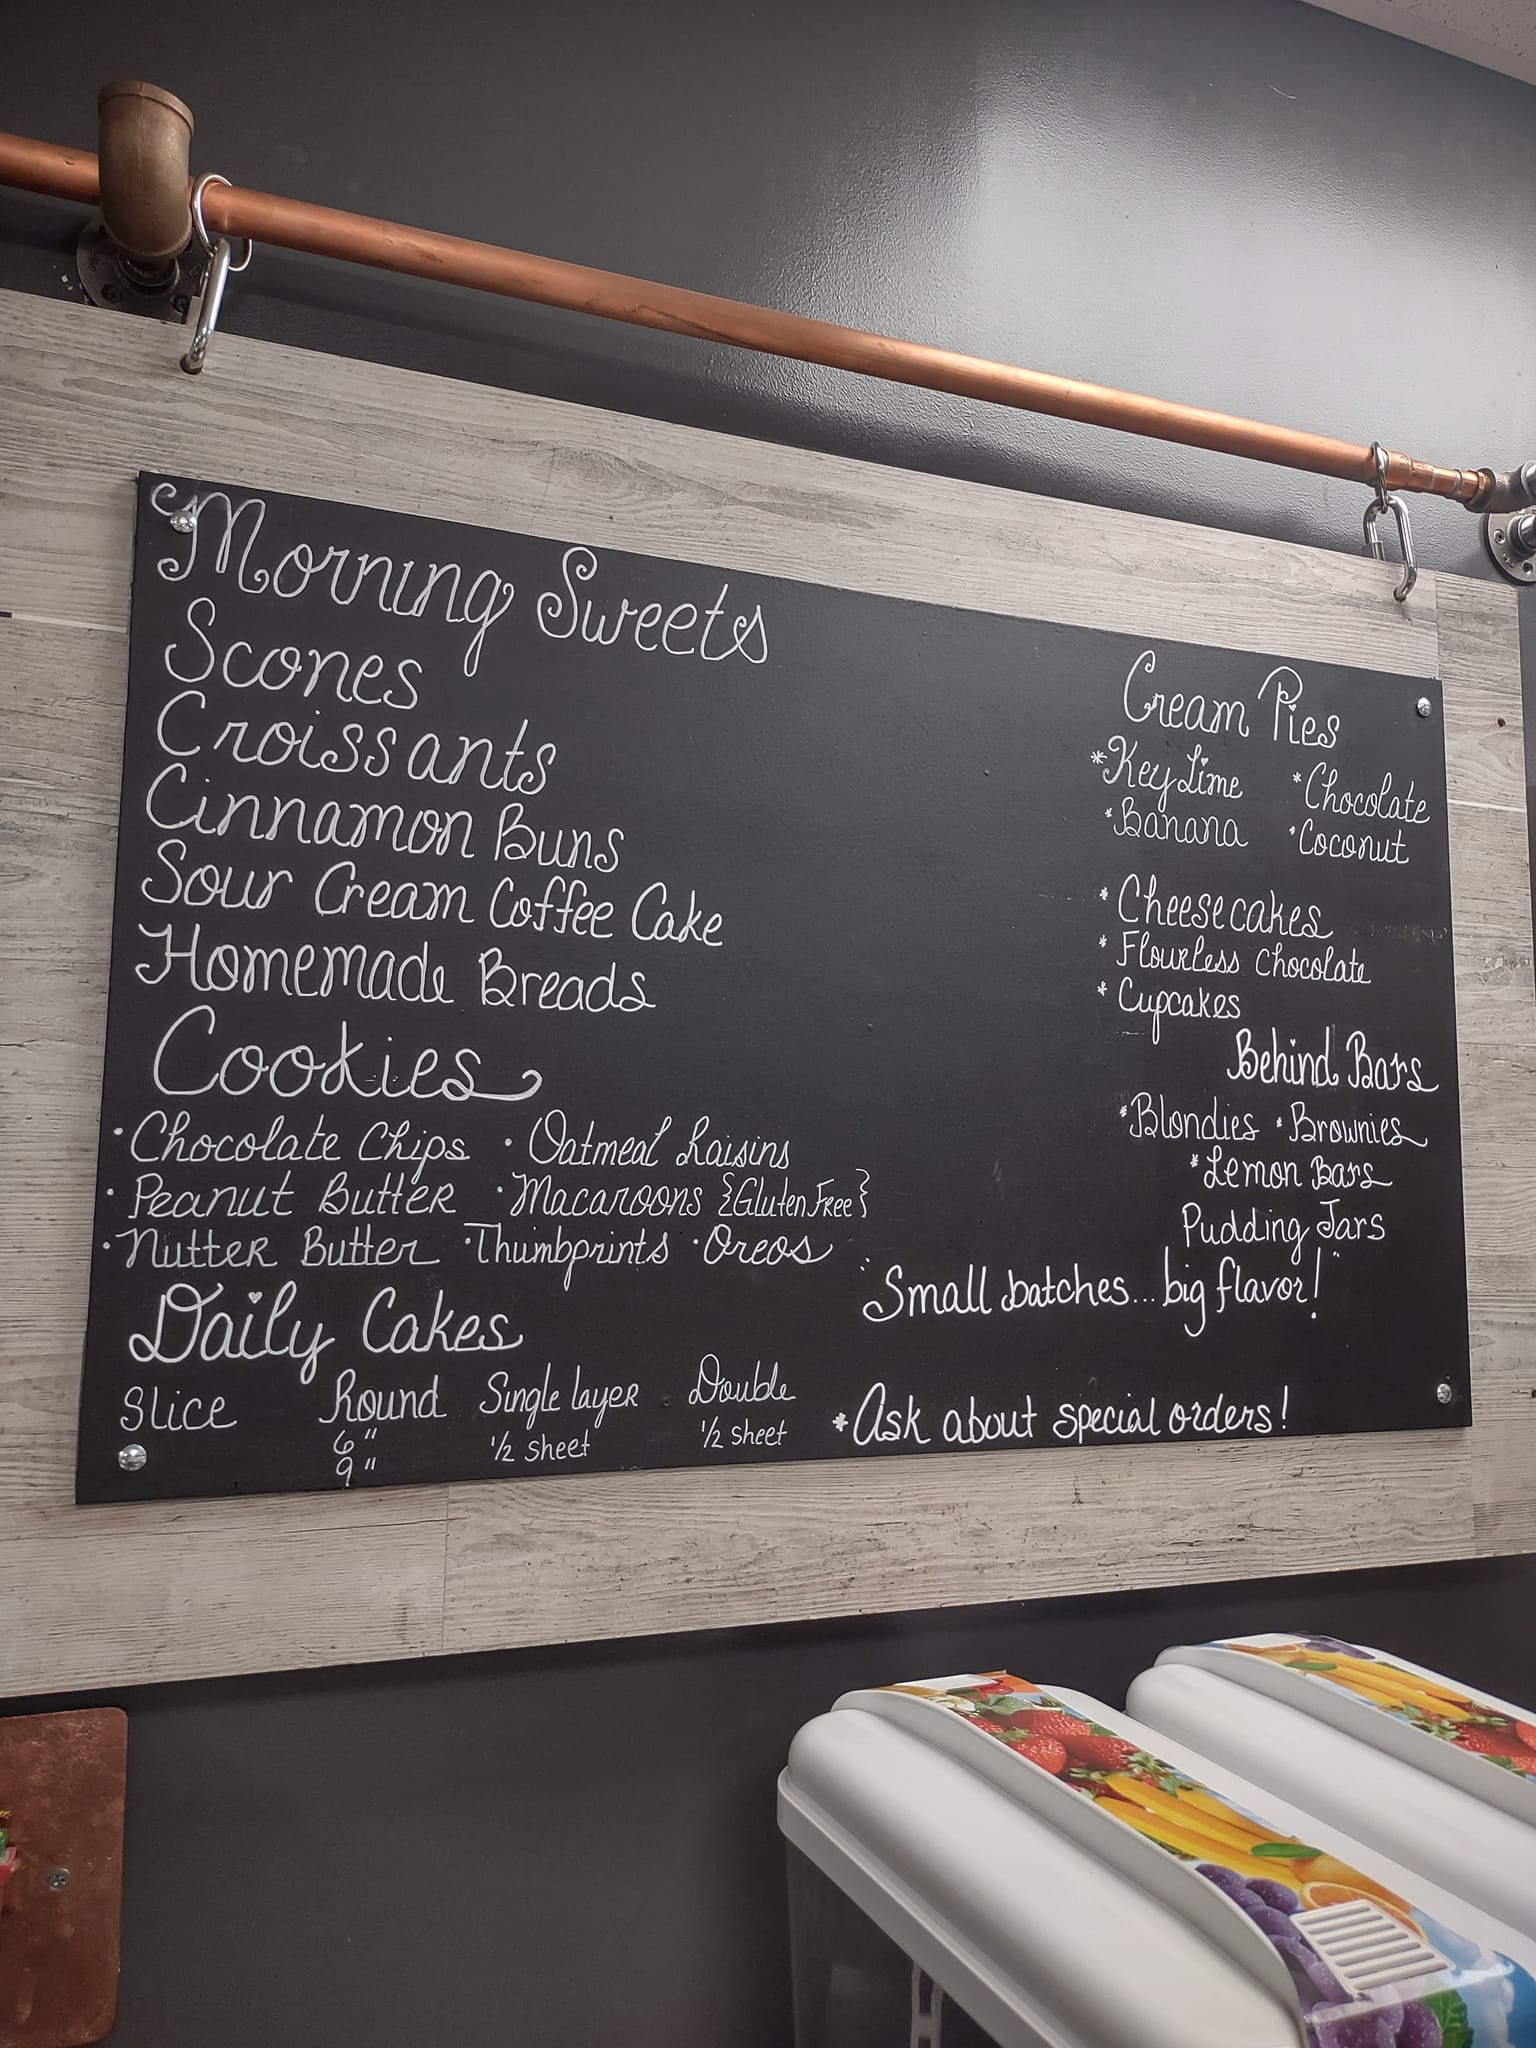 Morning Sweets
Scones
Croissants
Cinnamon Buns
Sour Cream Coffee Cake
Homemade Breads
Cookies
• Chocolate Chips • Oatmeal Raisins
• Peanut Butter • Macaroons {Gluten Free}
• Nutter Butter • Thumbprints • Oreos
Daily Cakes
Slice Round Single layer Double
6" 1/2 sheet 1/2 sheet
9"
Cream Pies
* Key Lime * Chocolate
* Banana * Coconut
* Cheesecakes
* Flourless Chocolate
* Cupcakes
Behind Bars
* Blondies * Brownies
* Lemon Bars
Pudding Jars
"Small batches... big flavor!"
* Ask about special orders!